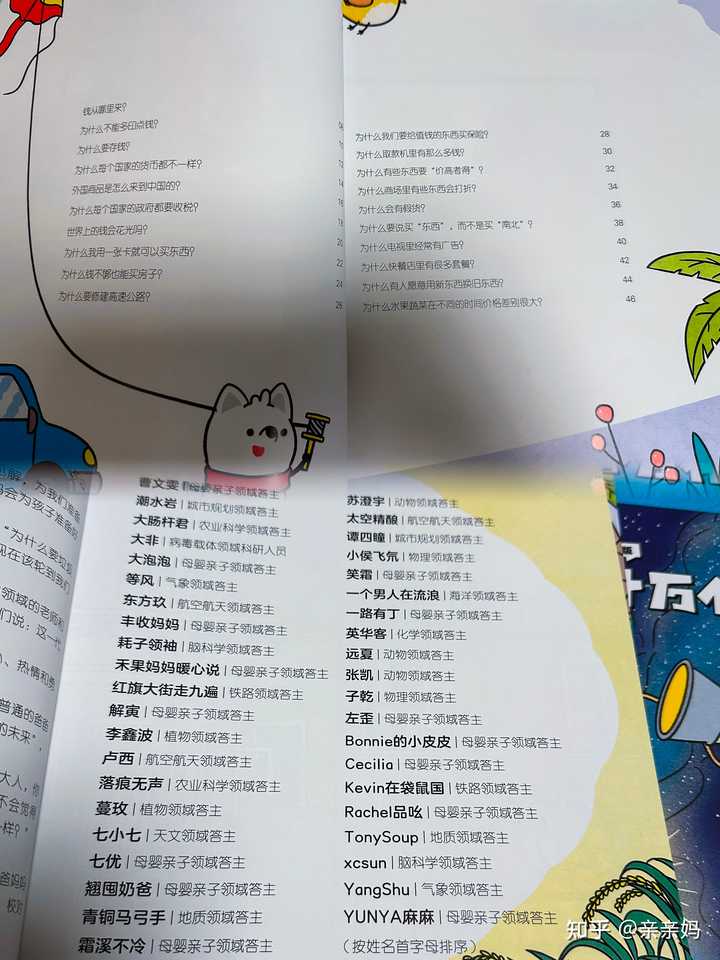 钱从哪里来？
为什么不能多印点钱？
为什么要存钱？
为什么每个国家的货币都不一样？
外国商品是怎么来到中国的？
为什么每个国家的政府都要收税？
世界上的钱会花光吗？
为什么我用一张卡就可以买东西？
为什么钱不够也能买房子？
为什么要修建高速公路？
10
12
14
16
18
20
22
24
26
为什么我们要给值钱的东西买保险？ 28
为什么取款机里有那么多钱？ 30
为什么有些东西要“价高者得”？ 32
为什么商场里有些东西会打折？ 34
为什么会有假货？ 36
为什么要说买“东西”，而不是买“南北”？ 38
为什么电视里经常有广告？ 40
为什么快餐店里有很多套餐？ 42
为什么有人愿意用新东西换旧东西？ 44
为什么水果蔬菜在不同的时间价格差别很大？ 46
曹文雯 | 母婴亲子领域答主
潮水岩 | 城市规划领域答主
大肠杆君 | 农业科学领域答主
大非 | 病毒载体领域科研人员
大泡泡 | 母婴亲子领域答主
等风 | 气象领域答主
东方玖 | 航空航天领域答主
丰收妈妈 | 母婴亲子领域答主
耗子领袖 | 脑科学领域答主
禾果妈妈暖心说 | 母婴亲子领域答主
红旗大街走九遍 | 铁路领域答主
解寅 | 母婴亲子领域答主
李鑫波 | 植物领域答主
卢西 | 航空航天领域答主
落痕无声 | 农业科学领域答主
蔓玫 | 植物领域答主
七小七 | 天文领域答主
七优 | 母婴亲子领域答主
翘囤奶爸 | 母婴亲子领域答主
青铜马弓手 | 地质领域答主
霜溪不冷 | 母婴亲子领域答主
苏澄宇 | 动物领域答主
太空精酿 | 航空航天领域答主
谭四瞳 | 城市规划领域答主
小侯飞氘 | 物理领域答主
笑霜 | 母婴亲子领域答主
一个男人在流浪 | 海洋领域答主
一路有丁 | 母婴亲子领域答主
英华客 | 化学领域答主
远夏 | 动物领域答主
张凯 | 动物领域答主
子乾 | 物理领域答主
左歪 | 母婴亲子领域答主
Bonnie的小皮皮 | 母婴亲子领域答主
Cecilia | 母婴亲子领域答主
Kevin在袋鼠国 | 铁路领域答主
Rachel品吆 | 母婴亲子领域答主
TonySoup | 地质领域答主
xcsun | 脑科学领域答主
YangShu | 气象领域答主
YUNYA麻麻 | 母婴亲子领域答主
（按姓名首字母排序）
会为孩子准备的
“为什么要垃圾
现在该轮到我们
领域的老师和
们说：这一代
、热情和勇
普通的爸爸
的未来”，
大人，他
不会觉得
一样？”
爸妈妈
校对
万
知乎 @亲亲妈